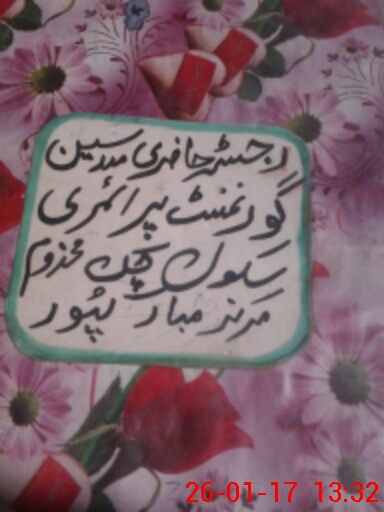 رجسٹر حاضری مدرسین
گورنمنٹ پرائمری
سکول چک مخدوم
مرکز مبارکپور
26-01-17 13:32